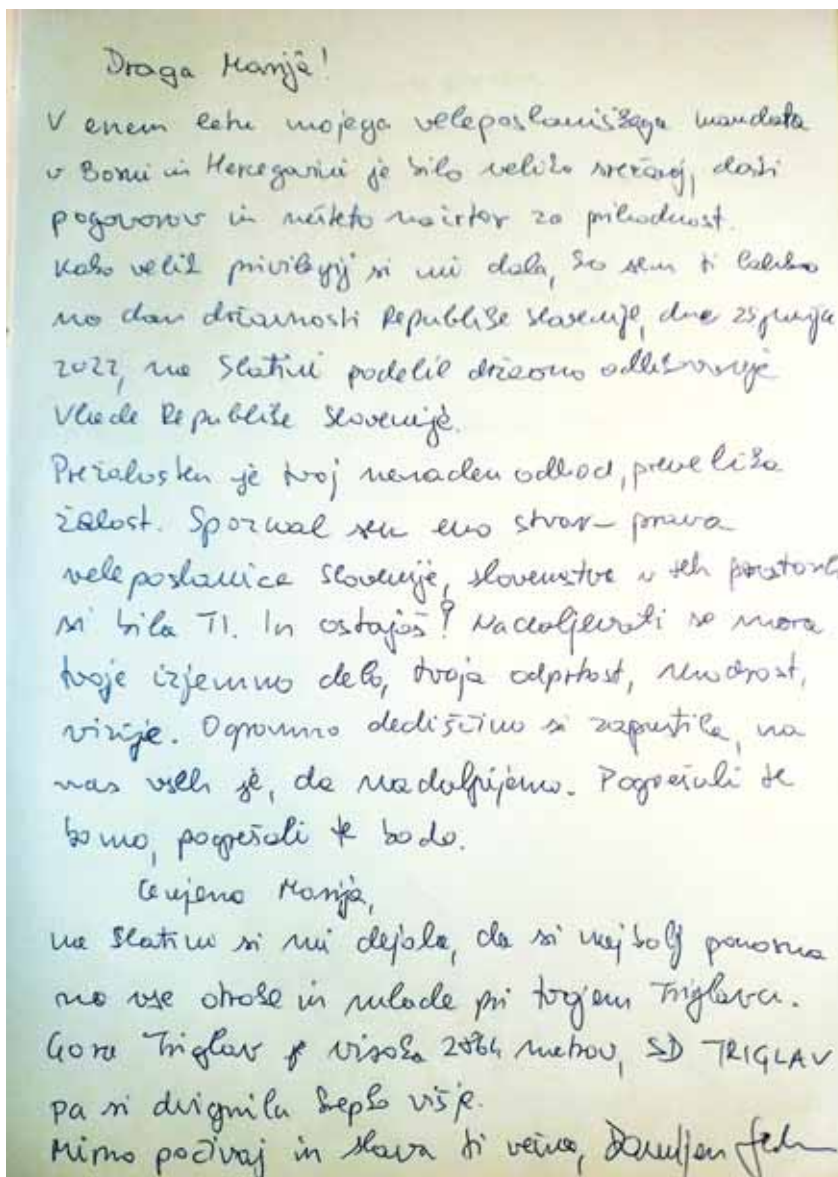 Draga Marija!
V enem letu mojega veleposlaniškega mandata
v Bosni in Hercegovini je bilo veliko srečanj, dosti
pogovorov in nešteto načrtov za prihodnost.
Kako velik privilegij si mi dala, ko sem ti lahko
na dan državnosti Republike Slovenije, dne 25. junija
2022, na Slatini podelil državno odlikovanje
Vlade Republike Slovenije.
Prežalosten je tvoj nenaden odhod, prevelika
žalost. Spoznal sem eno stvar – prava
veleposlanica Slovenije, slovenstva v teh prostorih
si bila TI. In ostajaš! Nadaljevati se mora
tvoje izjemno delo, tvoja odprtost, modrost,
vizije. Ogromno dediščino si zapustila, na
nas vseh je, da nadaljujemo. Pogrešali te
bomo, pogrešali te bodo.
Cenjena Marija,
na Slatini si mi dejala, da si najbolj ponosna
na vse otroke in mlade pri tvojem Triglavu.
Gora Triglav je visoka 2864 metrov, SD TRIGLAV
pa si dvignila krepko višje.
Mirno počivaj in slava ti večna, Damijan